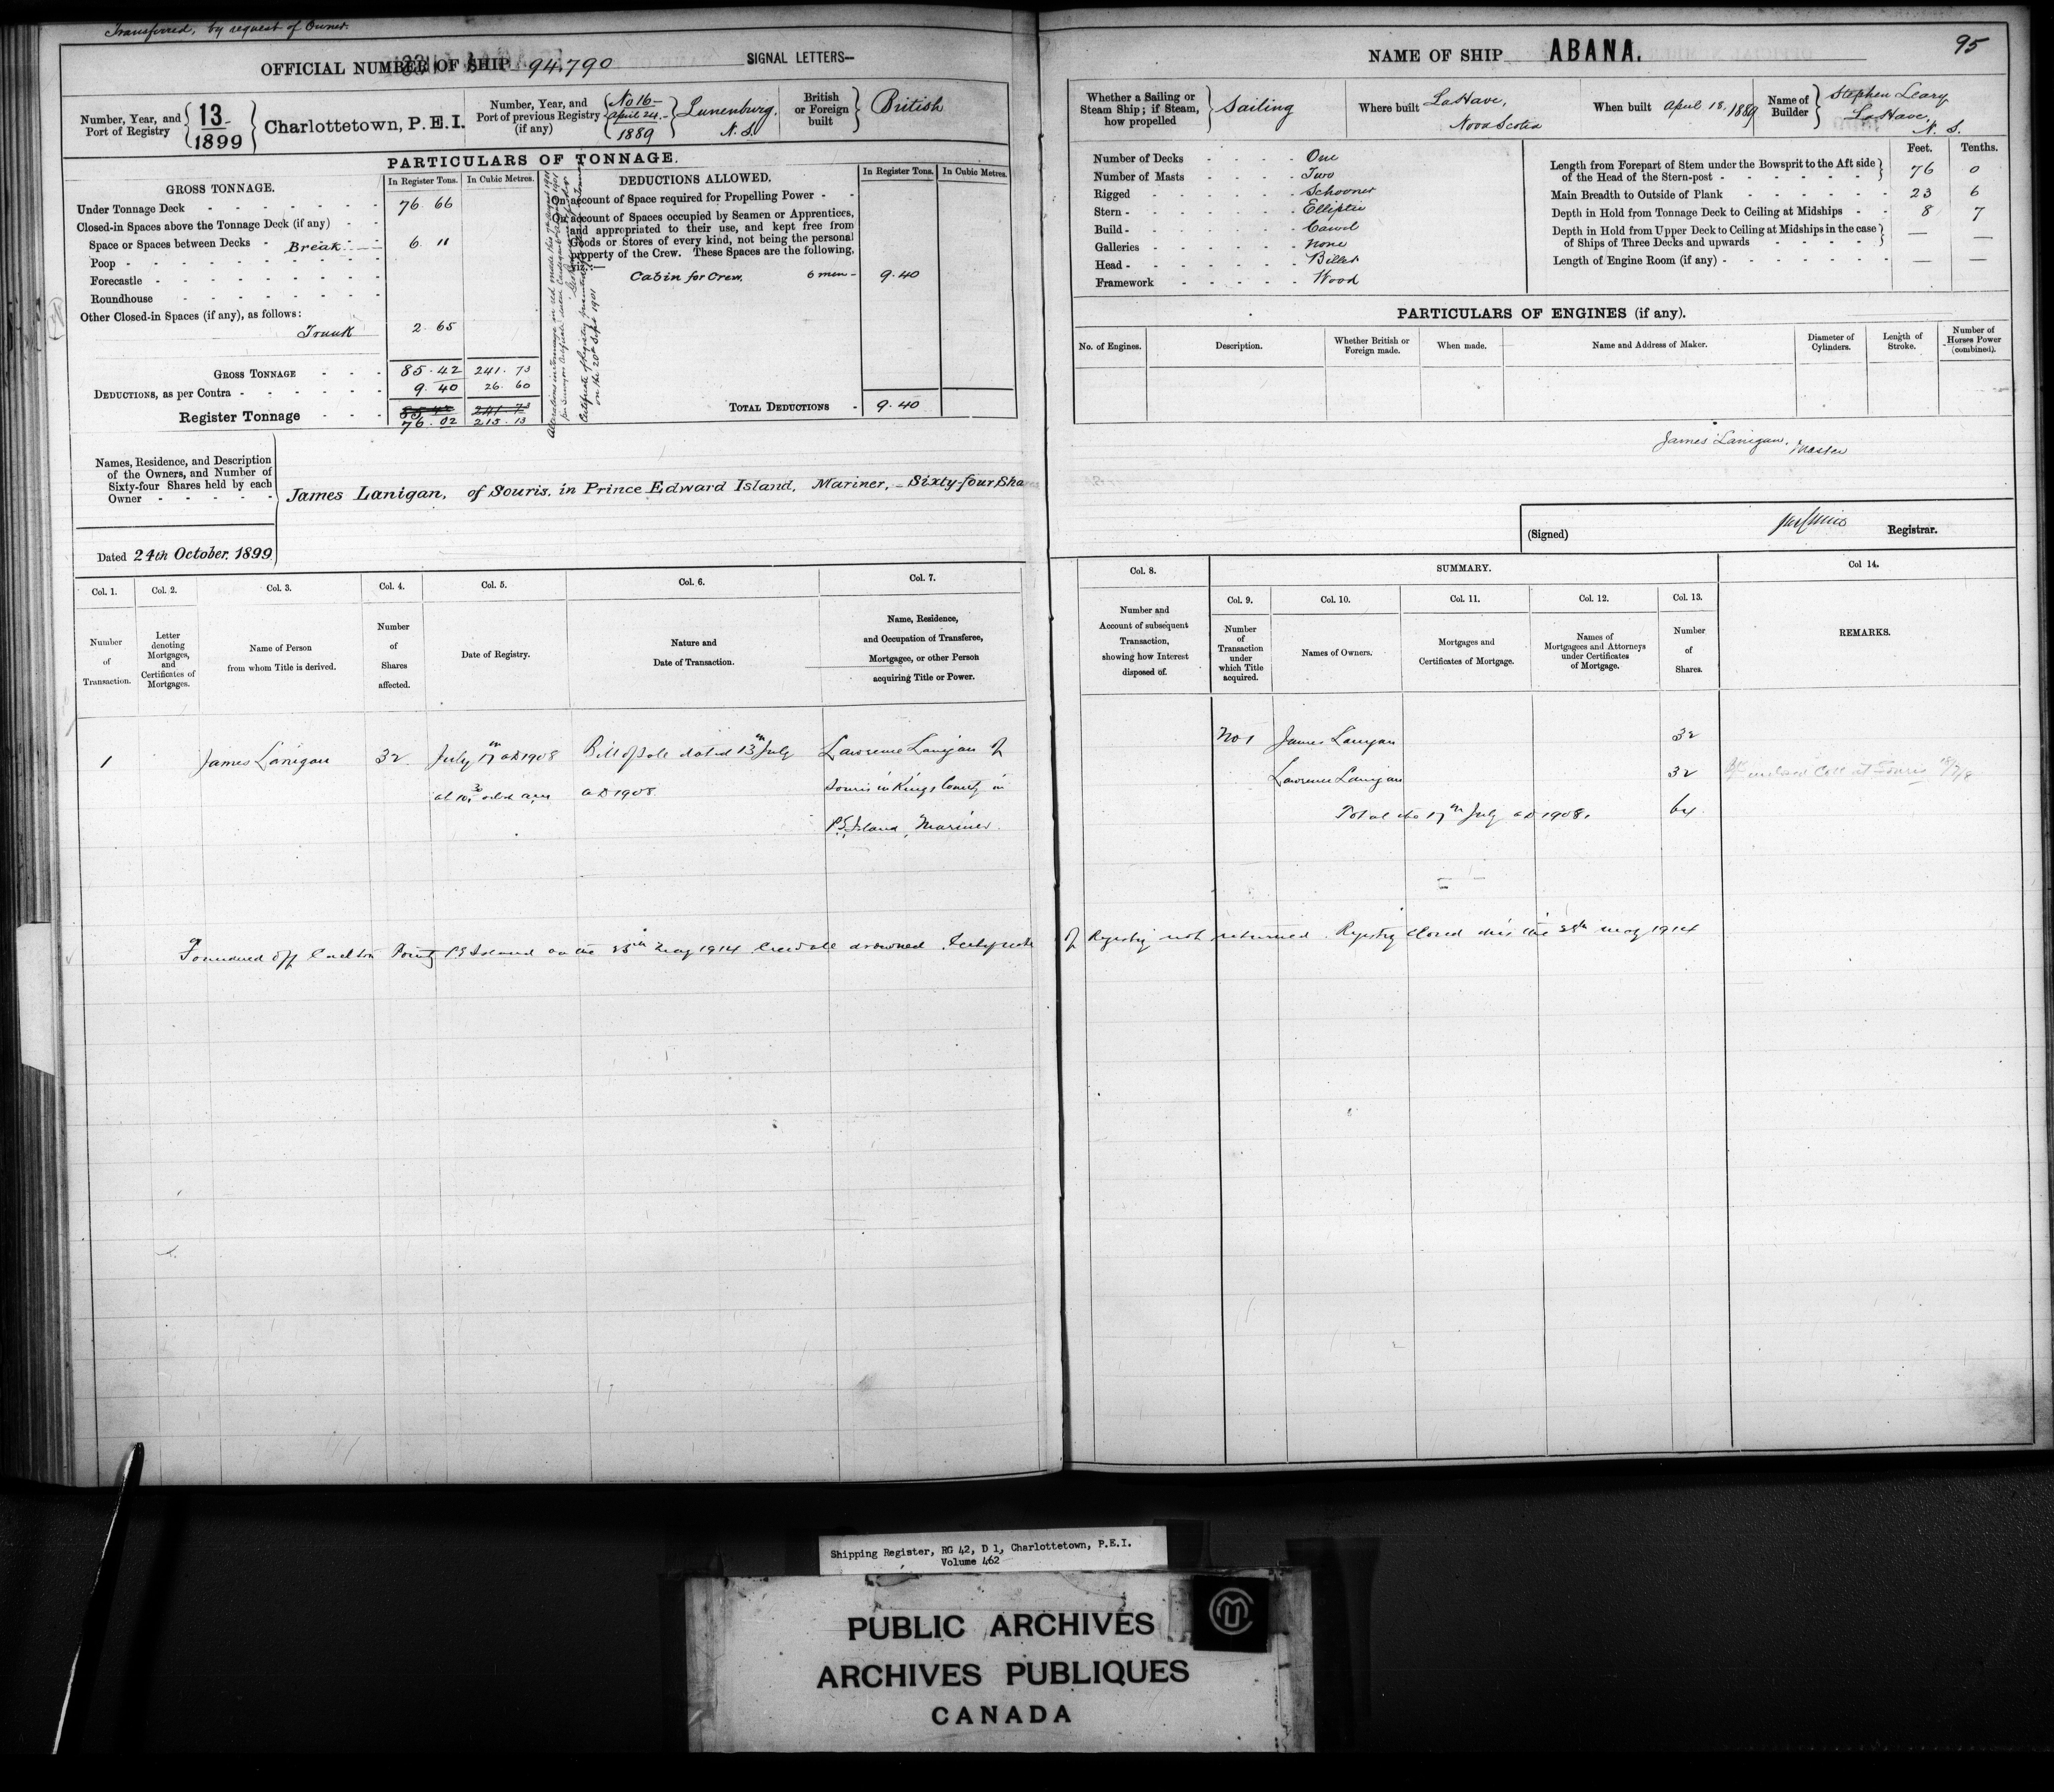 Transferred, by request of Owner.
OFFICIAL NUMBER OF SHIP 94,790 SIGNAL LETTERS—
Number, Year, and Port of Registry 13 1899 Charlottetown, P.E.I.
Number, Year, and Port of previous Registry (if any) No 16- April 24.- 1889 Lunenburg. N.S.
British or Foreign built British
PARTICULARS OF TONNAGE.
GROSS TONNAGE. In Register Tons. In Cubic Metres.
Under Tonnage Deck 76 66
Closed-in Spaces above the Tonnage Deck (if any)
Space or Spaces between Decks Break 6 11
Poop
Forecastle
Roundhouse
Other Closed-in Spaces (if any), as follows:
Trunk 2 65
GROSS TONNAGE 85.42 241.73
DEDUCTIONS, as per Contra 9.40 26.60
Register Tonnage 85.42 241.73
76.02 215.13
DEDUCTIONS ALLOWED. In Register Tons. In Cubic Metres.
On account of Space required for Propelling Power
On account of Spaces occupied by Seamen or Apprentices,
and appropriated to their use, and kept free from
Goods or Stores of every kind, not being the personal
property of the Crew. These Spaces are the following,
viz.:—
Cabin for Crew. 6 men 9.40
TOTAL DEDUCTIONS 9.40
on the 20th Sept 1901
Names, Residence, and Description
of the Owners, and Number of
Sixty-four Shares held by each
Owner
James Lanigan, of Souris, in Prince Edward Island, Mariner, - Sixty-four Sha
Dated 24th October, 1899
Col. 1. Col. 2. Col. 3. Col. 4. Col. 5. Col. 6. Col. 7.
Number of Transaction.
Letter denoting Mortgages, and Certificates of Mortgages.
Name of Person from whom Title is derived.
Number of Shares affected.
Date of Registry.
Nature and Date of Transaction.
Name, Residence, and Occupation of Transferee, Mortgagee, or other Person acquiring Title or Power.
1 James Lanigan 32 July 17th AD 1908 Bill of Sale dated 13th July Lawrence Lanigan of
at 10.30 a.m AD 1908 Souris in Kings County in
P.E. Island, Mariner.
Foundered off Carlton Point P.E. Island on the May 1914 Crew all drowned Certificate
NAME OF SHIP ABANA. 95
Whether a Sailing or Steam Ship; if Steam, how propelled Sailing
Where built LaHave, Nova Scotia
When built April 18, 1889
Name of Builder Stephen Leary LaHave, N.S.
Number of Decks One
Number of Masts Two
Rigged Schooner
Stern Elliptic
Build Carvel
Galleries None
Head Billet
Framework Wood
Feet. Tenths.
Length from Forepart of Stem under the Bowsprit to the Aft side
of the Head of the Stern-post 76 0
Main Breadth to Outside of Plank 23 6
Depth in Hold from Tonnage Deck to Ceiling at Midships 8 7
Depth in Hold from Upper Deck to Ceiling at Midships in the case
of Ships of Three Decks and upwards — —
Length of Engine Room (if any) — —
PARTICULARS OF ENGINES (if any).
No. of Engines. Description. Whether British or Foreign made. When made. Name and Address of Maker. Diameter of Cylinders. Length of Stroke. Number of Horses Power (combined).
James Lanigan, Master
(Signed) Registrar.
Col. 8. SUMMARY. Col 14.
Col. 9. Col. 10. Col. 11. Col. 12. Col. 13.
Number and Account of subsequent Transaction, showing how Interest disposed of.
Number of Transaction under which Title acquired.
Names of Owners.
Mortgages and Certificates of Mortgage.
Names of Mortgagees and Attorneys under Certificates of Mortgage.
Number of Shares.
REMARKS.
No 1 James Lanigan 32
Lawrence Lanigan 32
Total the 17th July AD 1908. 64
of Registry not returned. Registry closed this the May 1914
Shipping Register, RG 42, D 1, Charlottetown, P.E.I.
Volume 462
PUBLIC ARCHIVES
ARCHIVES PUBLIQUES
CANADA